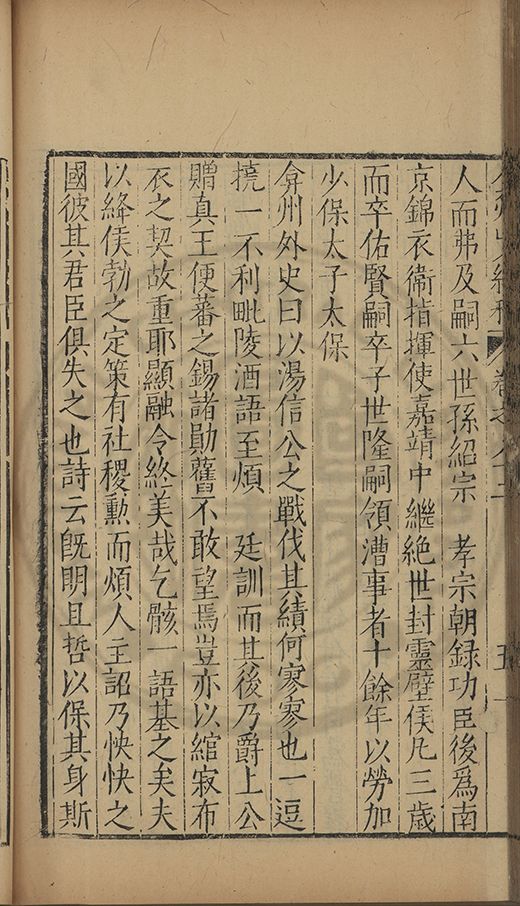 弇州山人續稿 卷之八十二 五
人而弗及嗣六世孫紹宗 孝宗朝録功臣後爲南
京錦衣衞指揮使嘉靖中繼絶世封靈璧侯凡三歲
而卒佑賢嗣卒子世隆嗣領漕事者十餘年以勞加
少保太子太保
弇州外史曰以湯信公之戰伐其績何寥寥也一逗
撓一不利毗陵酒語至煩 廷訓而其後乃爵上公
贈真王便蕃之錫諸勛舊不敢望焉豈亦以綰寂布
衣之契故重耶顯融令終美哉乞骸一語基之矣夫
以絳侯勃之定策有社稷勲而煩人主詔乃怏怏之
國彼其君臣俱失之也詩云旣明且哲以保其身斯